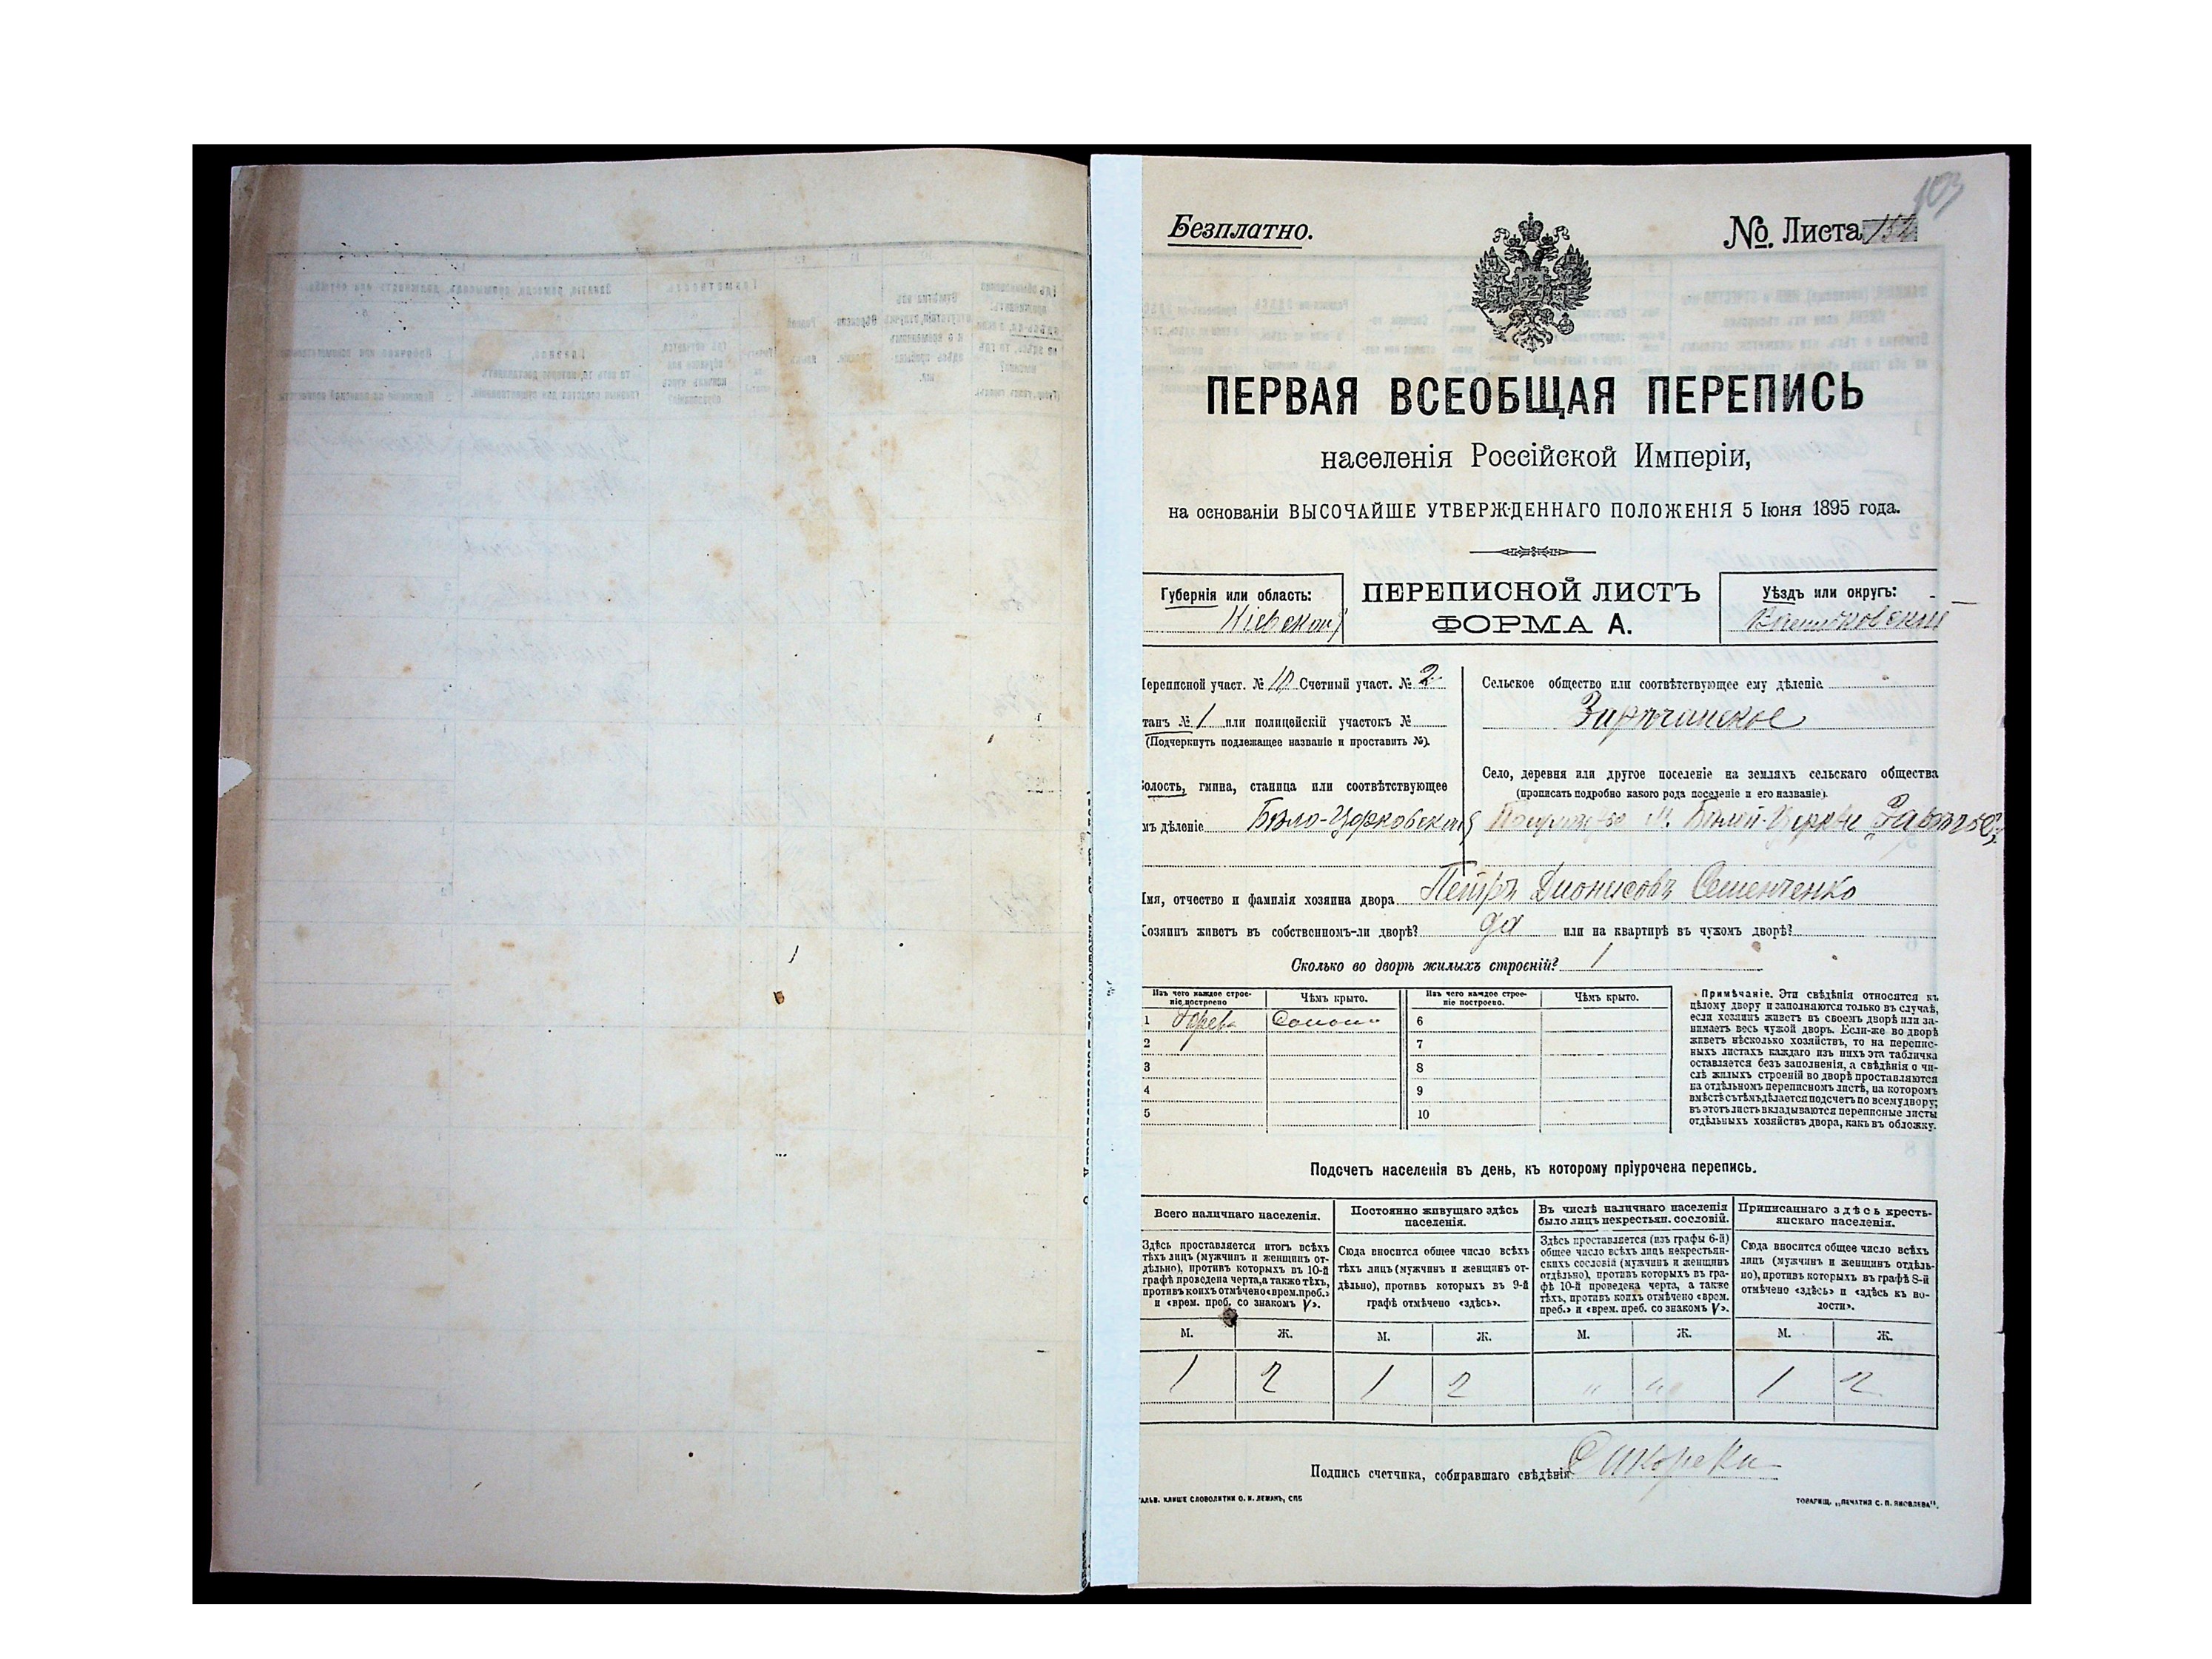 103
Безплатно.
№. Листа
ПЕРВАЯ ВСЕОБЩАЯ ПЕРЕПИСЬ
населенія Россійской Имперіи,
на основаніи ВЫСОЧАЙШЕ УТВЕРЖДЕННАГО ПОЛОЖЕНІЯ 5 Іюня 1895 года.
Губернія или область:
Кіевской
ПЕРЕПИСНОЙ ЛИСТЪ
ФОРМА А.
Уѣздъ или округъ:
Васильковскій
Переписной участ. № 10 Счетный участ. № 2
танъ № 1 или полицейскій участокъ №
(Подчеркнуть подлежащее названіе и проставить №).
олость, гмина, станица или соотвѣтствующее
мъ дѣленіе Бѣло-Церковской
Сельское общество или соотвѣтствующее ему дѣленіе
Зарѣчанское
Село, деревня или другое поселеніе на земляхъ сельскаго общества
(прописать подробно какого рода поселеніе и его названіе).
м. Бѣлой-Церкви
Имя, отчество и фамилія хозяина двора Петръ Діонисовъ Семенченко
Хозяинъ живетъ въ собственномъ-ли дворѣ? да или на квартирѣ въ чужомъ дворѣ?
Сколько во дворѣ жилыхъ строеній? 1
Изъ чего каждое строе-
ніе построено
Чѣмъ крыто.
Изъ чего каждое строе-
ніе построено.
Чѣмъ крыто.
1 Дерев. Солом. 6
2 7
3 8
4 9
5 10
Примѣчаніе. Эти свѣдѣнія относятся къ
цѣлому двору и заполняются только въ случаѣ,
если хозяинъ живетъ въ своемъ дворѣ или за-
нимаетъ весь чужой дворъ. Если-же во дворѣ
живетъ нѣсколько хозяйствъ, то на перепис-
ныхъ листахъ каждаго изъ нихъ эта табличка
оставляется безъ заполненія, а свѣдѣнія о чи-
слѣ жилыхъ строеній во дворѣ проставляются
на отдѣльномъ переписномъ листѣ, на которомъ
вмѣстѣ съ тѣмъ дѣлается подсчетъ по всему двору;
въ этотъ листъ вкладываются переписные листы
отдѣльныхъ хозяйствъ двора, какъ въ обложку.
Подсчетъ населенія въ день, къ которому пріурочена перепись.
Всего наличнаго населенія.
Здѣсь проставляется итогъ всѣхъ
тѣхъ лицъ (мужчинъ и женщинъ от-
дѣльно), противъ которыхъ въ 10-й
графѣ проведена черта, а также тѣхъ,
противъ коихъ отмѣчено «врем. преб.»
и «врем. преб. со знакомъ V».
Постоянно живущаго здѣсь
населенія.
Сюда вносится общее число всѣхъ
тѣхъ лицъ (мужчинъ и женщинъ от-
дѣльно), противъ которыхъ въ 9-й
графѣ отмѣчено «здѣсь».
Въ числѣ наличнаго населенія
было лицъ некрестьян. сословій.
Здѣсь проставляется (изъ графы 6-й)
общее число всѣхъ лицъ некрестьян-
скихъ сословій (мужчинъ и женщинъ
отдѣльно), противъ которыхъ въ гра-
фѣ 10-й проведена черта, а также
тѣхъ, противъ коихъ отмѣчено «врем.
преб.» и «врем. преб. со знакомъ V».
Приписаннаго здѣсь кресть-
янскаго населенія.
Сюда вносится общее число всѣхъ
лицъ (мужчинъ и женщинъ отдѣль-
но), противъ которыхъ въ графѣ 8-й
отмѣчено «здѣсь» и «здѣсь къ во-
лости».
М. Ж. М. Ж. М. Ж. М. Ж.
1 2 1 2 " " 1 2
Подпись счетчика, собиравшаго свѣдѣнія
ГАЛЬВ. КЛИШЕ СЛОВОЛИТНИ О. И. ЛЕМАНЪ, СПБ
ТОВАРИЩ. „ПЕЧАТНЯ С. П. ЯКОВЛЕВА".